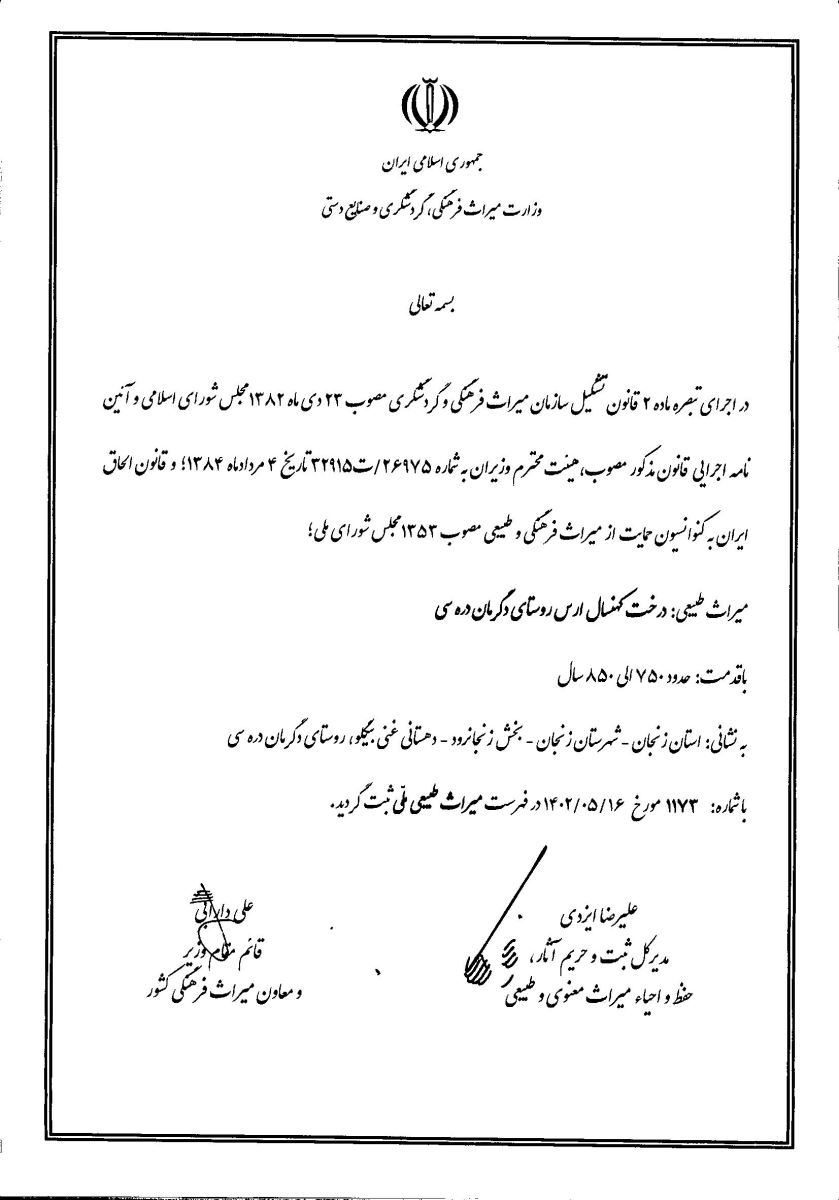 جمهوری اسلامی ایران
وزارت میراث فرهنگی، گردشگری و صنایع دستی
بسمه تعالی
در اجرای تبصره ماده ۲ قانون تشکیل سازمان میراث فرهنگی و گردشگری مصوب ۲۳ دی ماه ۱۳۸۲ مجلس شورای اسلامی و آئین
نامه اجرایی قانون مذکور مصوب، هیئت محترم وزیران به شماره ۲۶۹۷۵/ت۳۲۹۱۵ تاریخ ۴ مردادماه ۱۳۸۴؛ و قانون الحاق
ایران به کنوانسیون حمایت از میراث فرهنگی و طبیعی مصوب ۱۳۵۳ مجلس شورای ملی؛
میراث طبیعی: درخت کهنسال ارس روستای دگرمان دره سی
باقدمت: حدود ۷۵۰ الی ۸۵۰ سال
به نشانی: استان زنجان - شهرستان زنجان - بخش زنجانرود - دهستانی غنی بیگلو، روستای دگرمان دره سی
با شماره: ۱۱۷۳ مورخ ۱۴۰۲/۰۵/۱۶ در فهرست میراث طبیعی ملّی ثبت گردید.
علیرضا ایزدی
مدیرکل ثبت و حریم آثار،
حفظ و احیاء میراث معنوی و طبیعی
علی دارابی
قائم مقام وزیر
و معاون میراث فرهنگی کشور